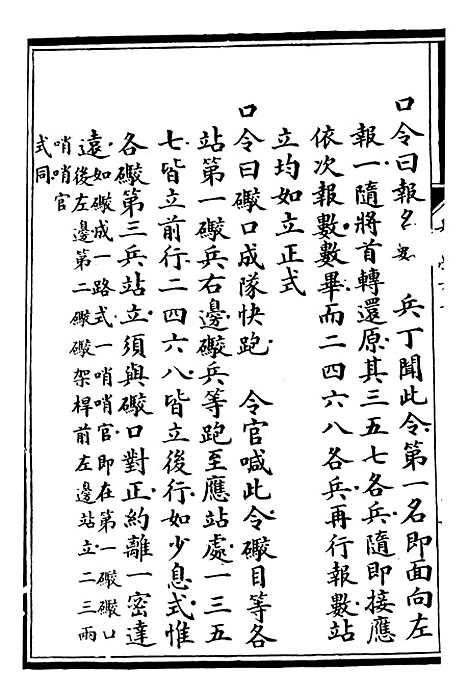 口令曰報名數 兵丁聞此令第一名即面向左
報一隨將首轉還原其三五七各兵隨即接應
依次報數數畢而二四六八各兵再行報數站
立均如立正式
口令曰礮口成隊快跑 令官喊此令礮目等各
站第一礮兵右邊礮兵等跑至應站處一三五
七皆立前行二四六八皆立後行如少息式惟
各礮第三兵站立須與礮口對正約離一密達
遠如礮成一路式一哨哨官即在第一礮礮口
後左邊第二礮礮架桿前左邊站立二三兩
哨哨官
式同